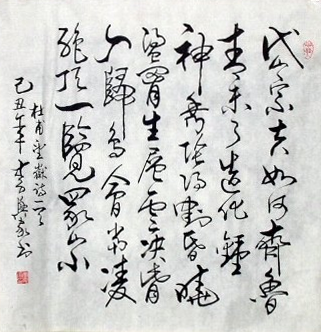 岱宗夫如何齊魯
青未了造化鍾
神秀陰陽割昏曉
盪胷生層雲決眥
入歸鳥會當凌
絕頂一覽眾山小
杜甫望嶽詩一首
己丑年